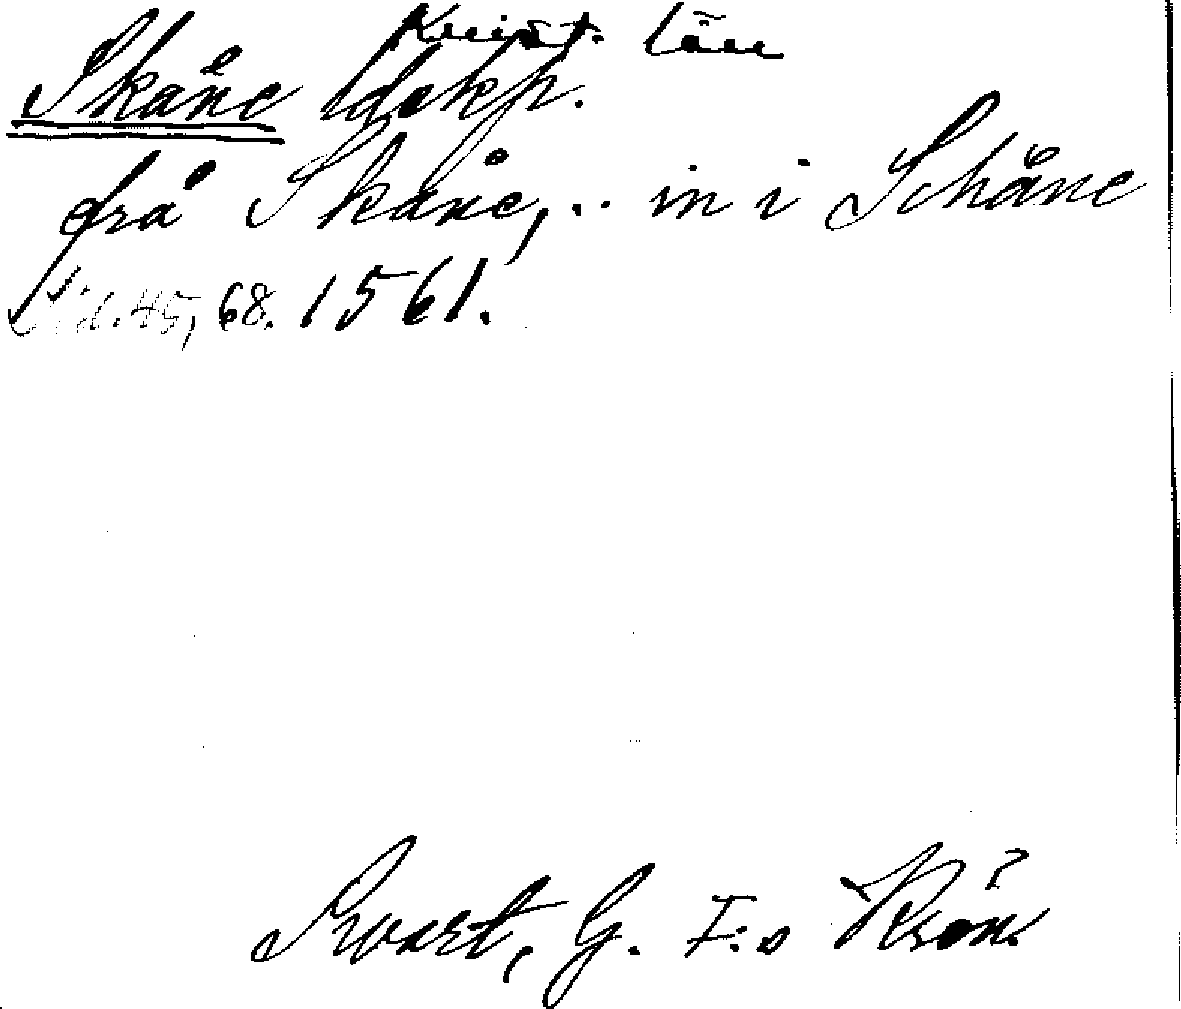 Krist. län
Skåne ldskp.
frå Skåne, .. in i Schåne
Sid. 45, 68. 1561.
Svart, G. I:s Krön.